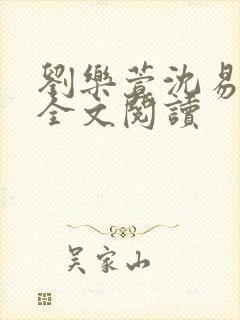 劉樂萱沈易
全文閱讀
吴家山